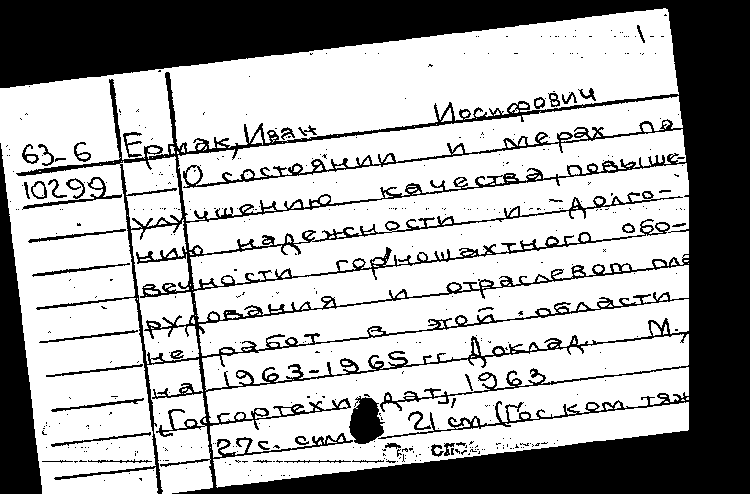 1
63-6 Ермак, Иван Иосифович
10299 О состоянии и мерах по
улучшению качества, повыше-
нию надежности и долго-
вечности горношахтного обо-
рудования и отраслевом пла
не работ в этой области
на 1963-1965 гг. Доклад. М.,
"Госгортехиздат", 1963.
27 с. 21 см (Гос ком тяж